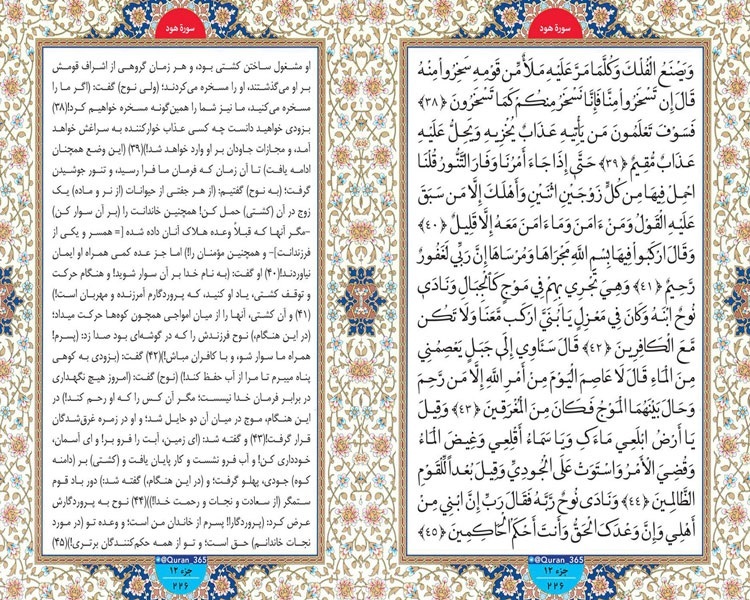 سورهٔ هود
وَيَصْنَعُ الْفُلْكَ وَكُلَّمَا مَرَّ عَلَيْهِ مَلَأٌ مِّن قَوْمِهِ سَخِرُوا۟ مِنْهُ
قَالَ إِن تَسْخَرُوا۟ مِنَّا فَإِنَّا نَسْخَرُ مِنكُمْ كَمَا تَسْخَرُونَ ﴿٣٨﴾
فَسَوْفَ تَعْلَمُونَ مَن يَأْتِيهِ عَذَابٌ يُخْزِيهِ وَيَحِلُّ عَلَيْهِ
عَذَابٌ مُّقِيمٌ ﴿٣٩﴾ حَتَّى إِذَا جَاءَ أَمْرُنَا وَفَارَ التَّنُّورُ قُلْنَا
احْمِلْ فِيهَا مِن كُلٍّ زَوْجَيْنِ اثْنَيْنِ وَأَهْلَكَ إِلَّا مَن سَبَقَ
عَلَيْهِ الْقَوْلُ وَمَنْ ءَامَنَ وَمَا ءَامَنَ مَعَهُ إِلَّا قَلِيلٌ ﴿٤٠﴾
وَقَالَ ارْكَبُوا۟ فِيهَا بِسْمِ اللَّهِ مَجْرَاهَا وَمُرْسَاهَا إِنَّ رَبِّي لَغَفُورٌ
رَّحِيمٌ ﴿٤١﴾ وَهِيَ تَجْرِي بِهِمْ فِي مَوْجٍ كَالْجِبَالِ وَنَادَى
نُوحٌ ابْنَهُ وَكَانَ فِي مَعْزِلٍ يَا بُنَيَّ ارْكَب مَّعَنَا وَلَا تَكُن
مَّعَ الْكَافِرِينَ ﴿٤٢﴾ قَالَ سَآوِي إِلَى جَبَلٍ يَعْصِمُنِي
مِنَ الْمَاءِ قَالَ لَا عَاصِمَ الْيَوْمَ مِنْ أَمْرِ اللَّهِ إِلَّا مَن رَّحِمَ
وَحَالَ بَيْنَهُمَا الْمَوْجُ فَكَانَ مِنَ الْمُغْرَقِينَ ﴿٤٣﴾ وَقِيلَ
يَا أَرْضُ ابْلَعِي مَاءَكِ وَيَا سَمَاءُ أَقْلِعِي وَغِيضَ الْمَاءُ
وَقُضِيَ الْأَمْرُ وَاسْتَوَتْ عَلَى الْجُودِيِّ وَقِيلَ بُعْدًا لِّلْقَوْمِ
الظَّالِمِينَ ﴿٤٤﴾ وَنَادَى نُوحٌ رَّبَّهُ فَقَالَ رَبِّ إِنَّ ابْنِي مِنْ
أَهْلِي وَإِنَّ وَعْدَكَ الْحَقُّ وَأَنتَ أَحْكَمُ الْحَاكِمِينَ ﴿٤٥﴾
@Quran_365
جزء ۱۲
۲۲۶
سورهٔ هود
او مشغول ساختن کشتی بود، و هر زمان گروهی از اشراف قومش
بر او می‌گذشتند، او را مسخره می‌کردند؛ (ولی نوح) گفت: (اگر ما را
مسخره می‌کنید، ما نیز شما را همین‌گونه مسخره خواهیم کرد!(۳۸)
بزودی خواهید دانست چه کسی عذاب خوارکننده به سراغش خواهد
آمد، و مجازات جاودان بر او وارد خواهد شد!)(۳۹) (این وضع همچنان
ادامه یافت) تا آن زمان که فرمان ما فرا رسید، و تنور جوشیدن
گرفت؛ (به نوح) گفتیم: (از هر جفتی از حیوانات (از نر و ماده) یک
زوج در آن (کشتی) حمل کن! همچنین خاندانت را (بر آن سوار کن)
-مگر آنها که قبلاً وعده هلاک آنان داده شده [= همسر و یکی از
فرزندانت]- و همچنین مؤمنان را!) اما جز عده کمی همراه او ایمان
نیاوردند!(۴۰) او گفت: (به نام خدا بر آن سوار شوید! و هنگام حرکت
و توقف کشتی، یاد او کنید، که پروردگارم آمرزنده و مهربان است!)
(۴۱) و آن کشتی، آنها را از میان امواجی همچون کوه‌ها حرکت میداد؛
(در این هنگام،) نوح فرزندش را که در گوشه‌ای بود صدا زد: (پسرم!
همراه ما سوار شو، و با کافران مباش!)(۴۲) گفت: (بزودی به کوهی
پناه میبرم تا مرا از آب حفظ کند!) (نوح) گفت: (امروز هیچ نگهداری
در برابر فرمان خدا نیست؛ مگر آن کس را که او رحم کند!) در
این هنگام، موج در میان آن دو حایل شد؛ و او در زمره غرق‌شدگان
قرار گرفت!(۴۳) و گفته شد: (ای زمین، آبت را فرو بر! و ای آسمان،
خودداری کن! و آب فرو نشست و کار پایان یافت و (کشتی) بر (دامنه
کوه) جودی، پهلو گرفت؛ و (در این هنگام،) گفته شد:) دور باد قوم
ستمگر (از سعادت و نجات و رحمت خدا!))(۴۴) نوح به پروردگارش
عرض کرد: (پروردگارا! پسرم از خاندان من است؛ و وعده تو (در مورد
نجات خاندانم) حق است؛ و تو از همه حکم‌کنندگان برتری!)(۴۵)
@Quran_365
جزء ۱۲
۲۲۶